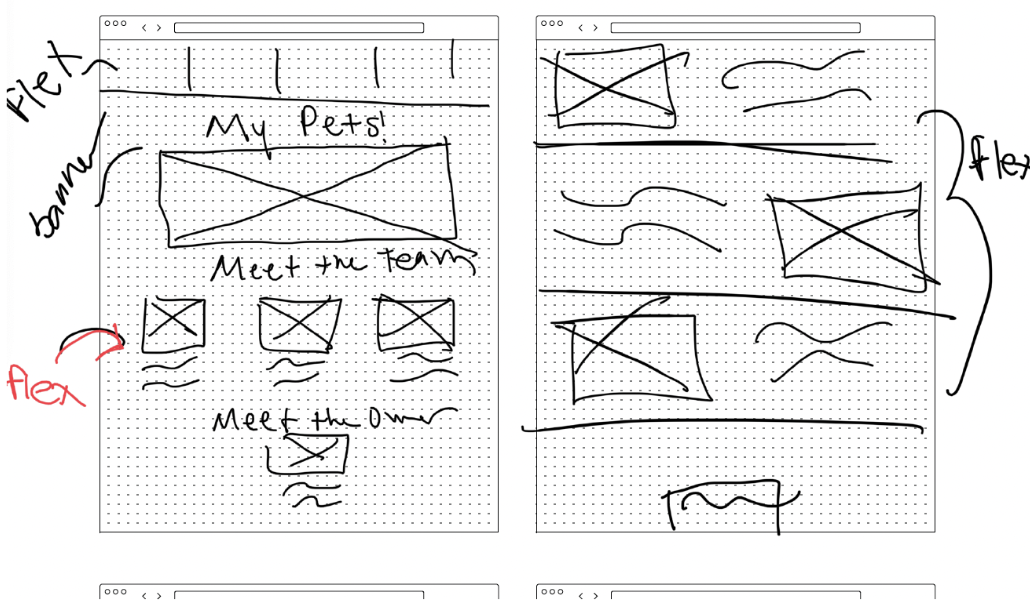 flex
banner
My Pets!
Meet the Team
flex
Meet the Owner
flex